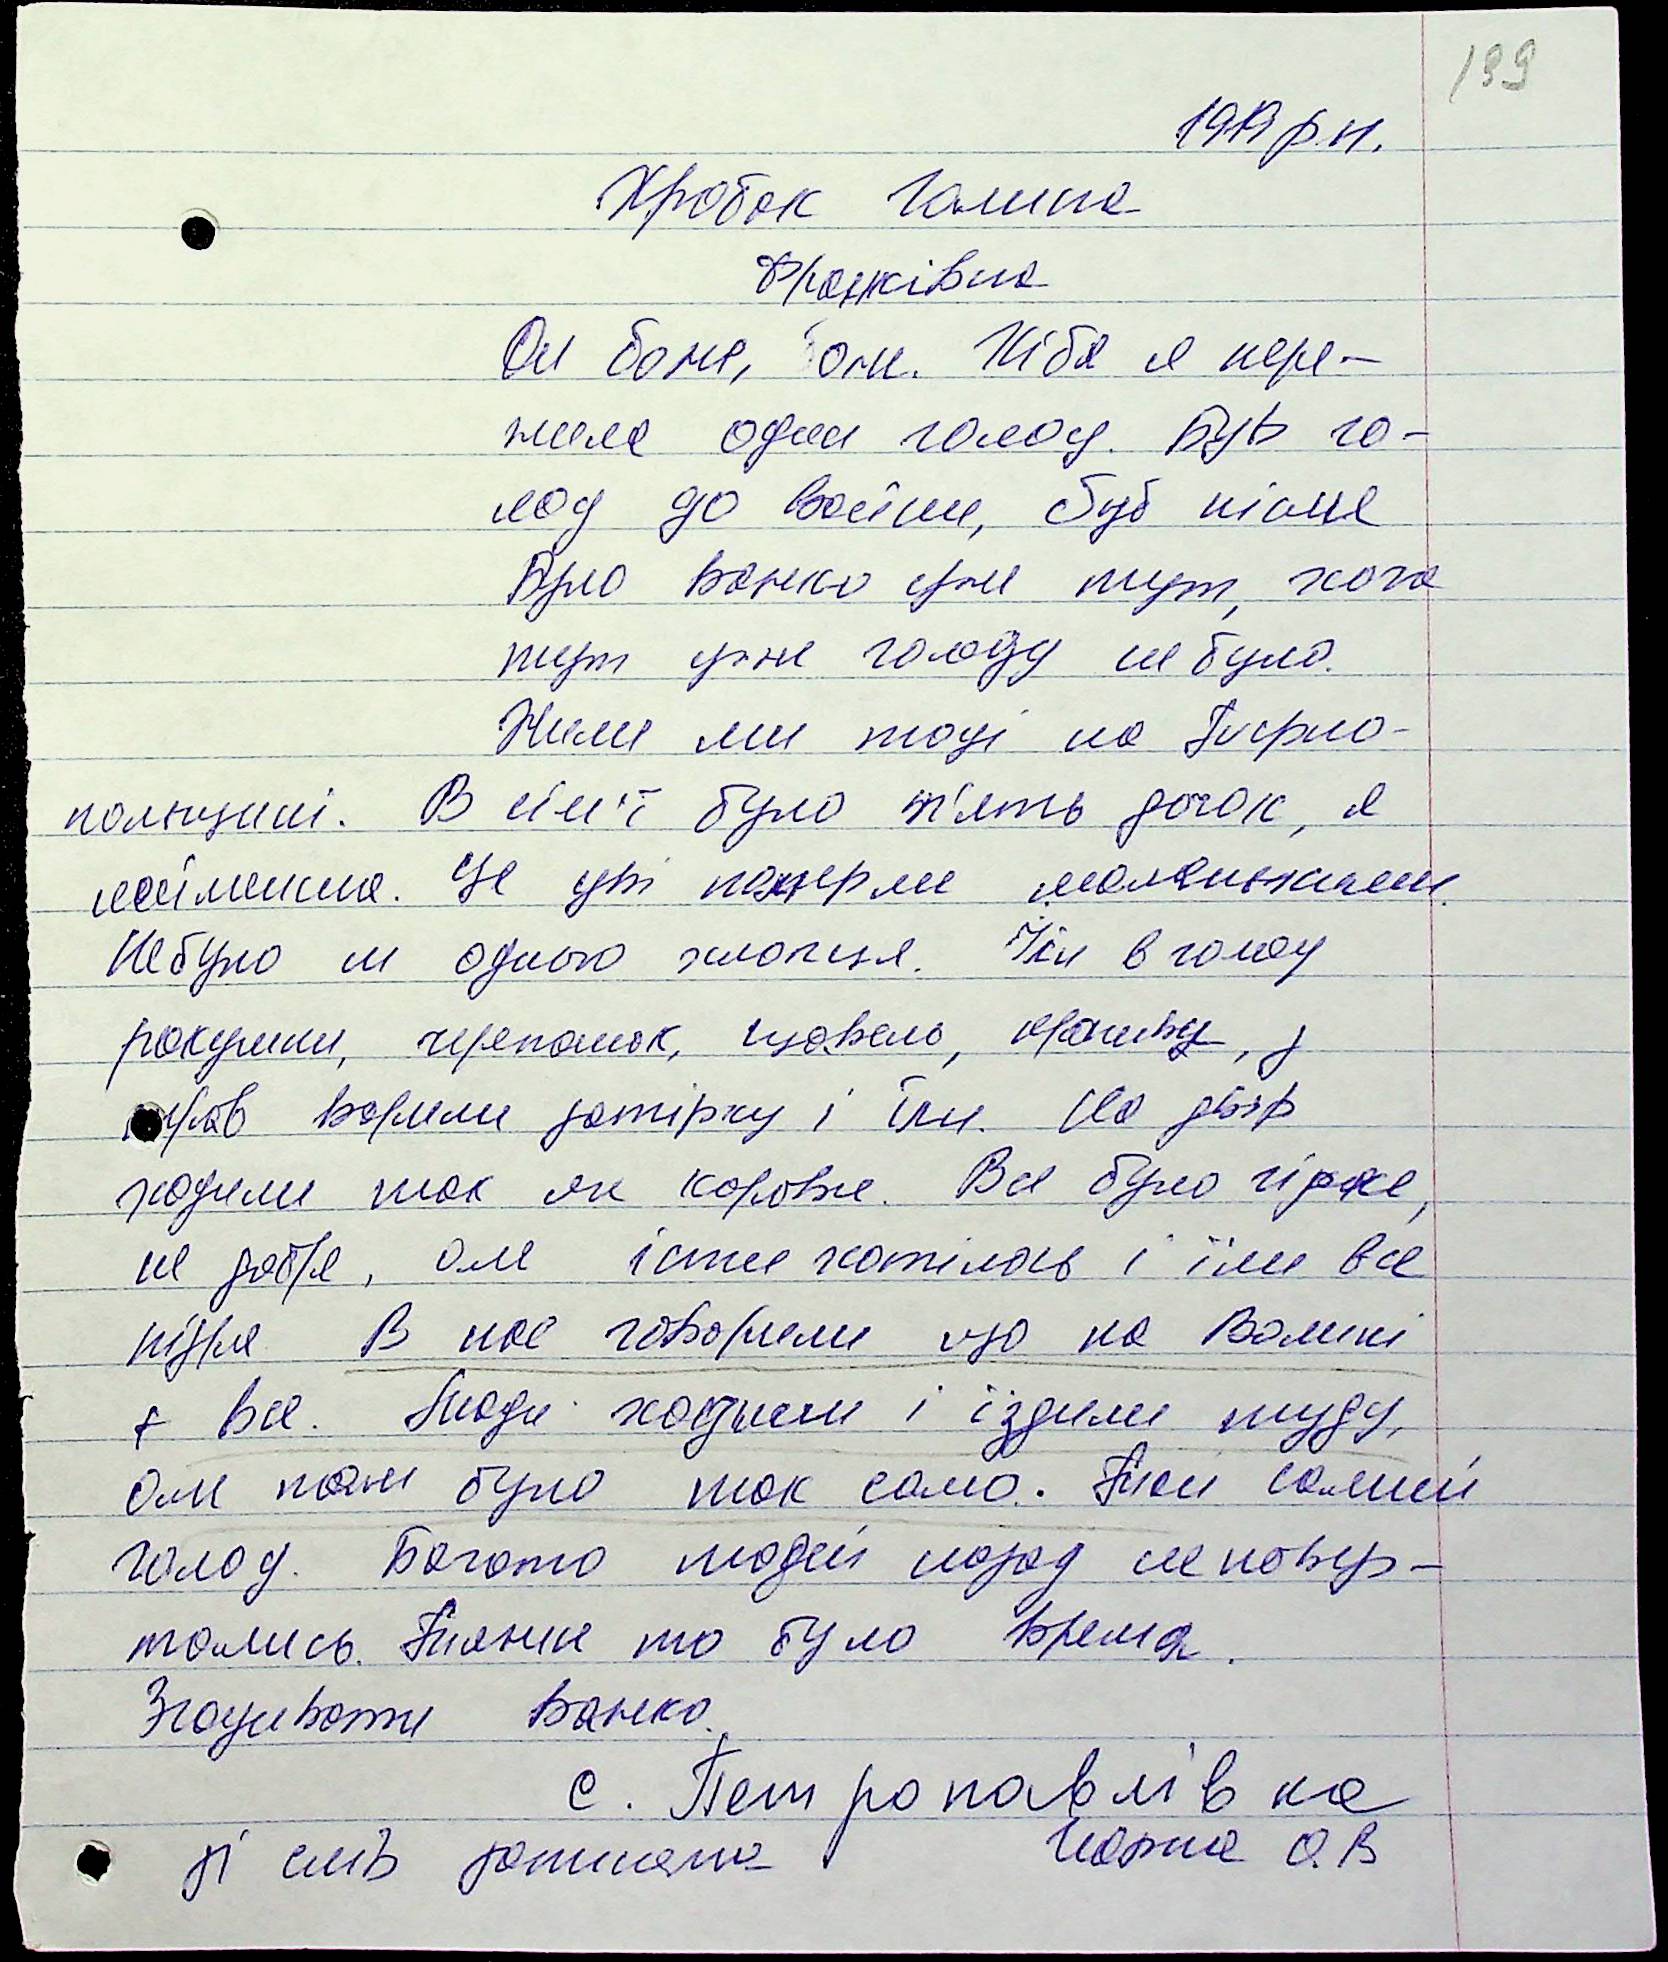 199
1919 р.н.
Хробак Галина
Франківна
Ой боже, боже. Хіба я пере-
жила один голод. Був го-
лод до войни, був після
Було важко уже тут, хоча
тут уже голоду не було.
Жили ми тоді на Терно-
польщині. В сім'ї було п'ять дочок, я
найменша. Ще дві померли маленькими.
Не було ні одного хлопця. Їли в голод
ракушки, черепашок, щавель, кропиву, з
трав варили затірку і їли. На двір
ходили так як корови. Все було гірке,
не добре, але їсти хотілось і їли все
підряд В нас говорили що на Волині
є все. Люди ходили і їздили туди,
але там було так само. Такий самий
голод. Багато людей назад не повер-
тались. Тяжке то було время.
Згадувати важко.
с. Петропавлівка
зі слів записала О.В